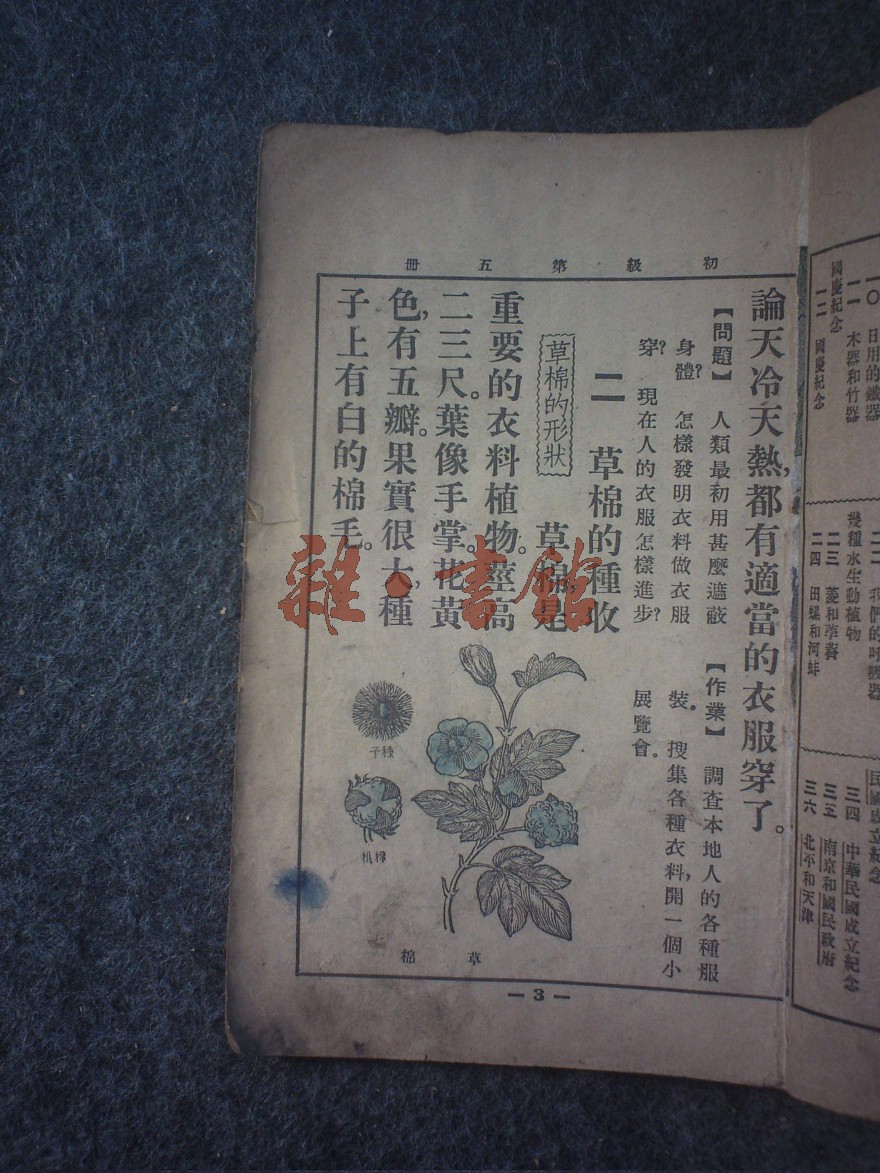 初級第五册
論天冷天熱,都有適當的衣服穿了。
【問題】 人類最初用甚麼遮蔽
身體? 怎樣發明衣料做衣服
穿? 現在人的衣服怎樣進步?
【作業】 調查本地人的各種服
裝。 搜集各種衣料,開一個小
展覽會。
二 草棉的種收
草棉的形狀
草棉是
重要的衣料植物。莖高
二三尺。葉像手掌。花黃
色,有五瓣。果實很大,種
子上有白的棉毛。
種子
棉桃
草棉
— 3 —
雜·書館
一〇 日用的鐵器
一一 木器和竹器
國慶紀念
一二 國慶紀念
二二 我們的呼吸器
幾種水生動植物
二三 菱和荸薺
二四 田螺和河蚌
民國成立紀念
三四 中華民國成立紀念
三五 南京和國民政府
三六 北平和天津